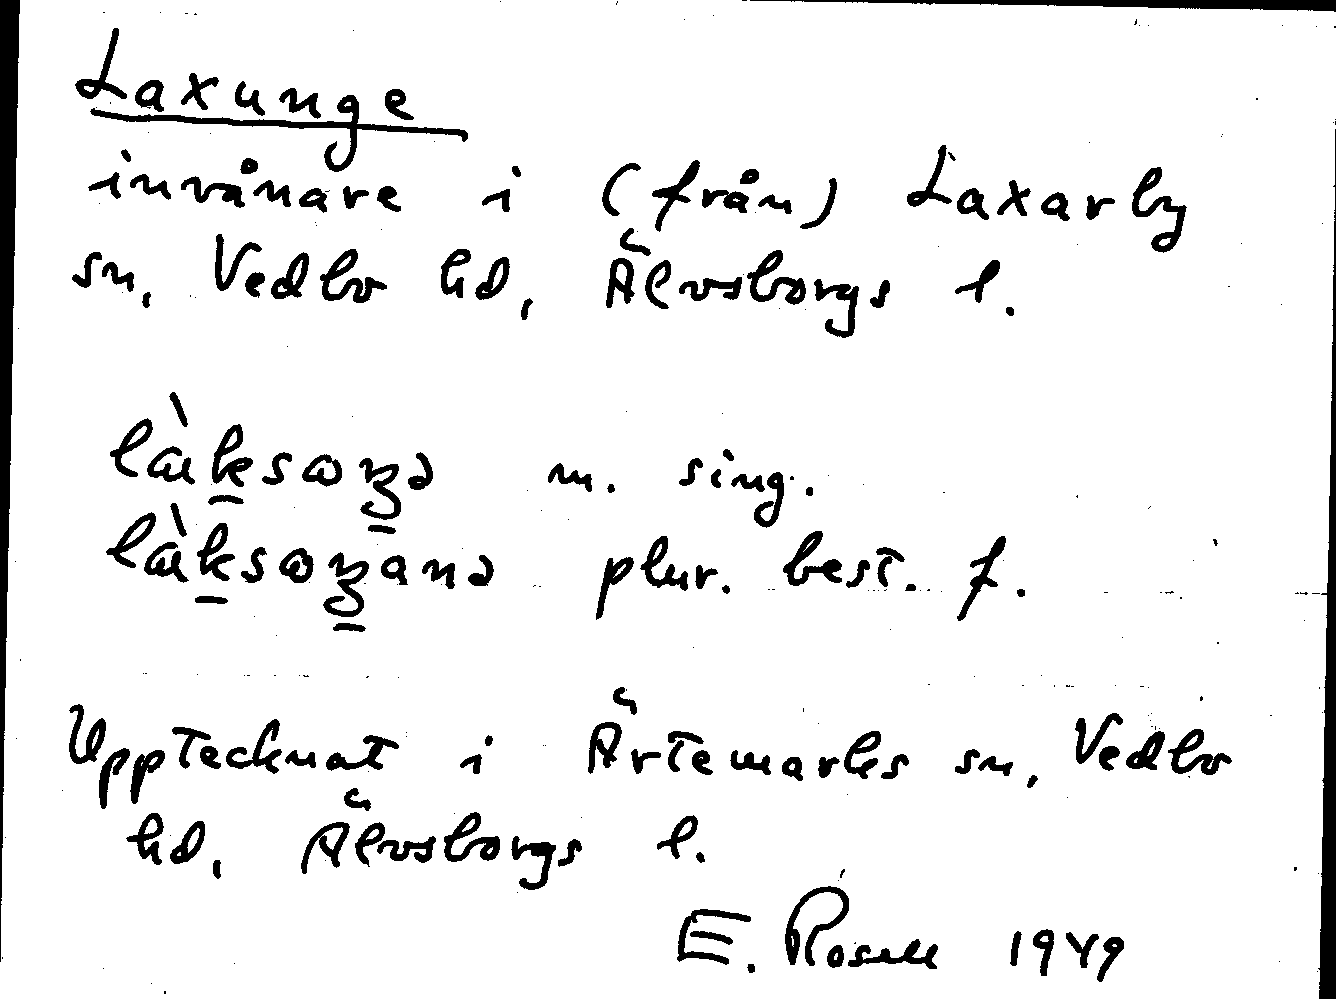 Laxunge
invånare i (från) Laxarby
sn, Vedbo hd, Älvsborgs l.
m. sing.
plur. best. f.
Upptecknat i Ärtemarks sn, Vedbo
hd, Älvsborgs l.
E. Rosell 1949